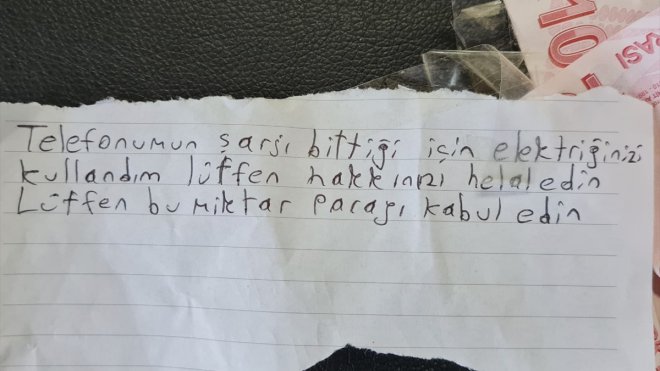 10
ASI
Telefonumun şarjı bittiği için elektriğinizi
kullandım lütfen hakkınızı helal edin
Lütfen bu miktar parayı kabul edin